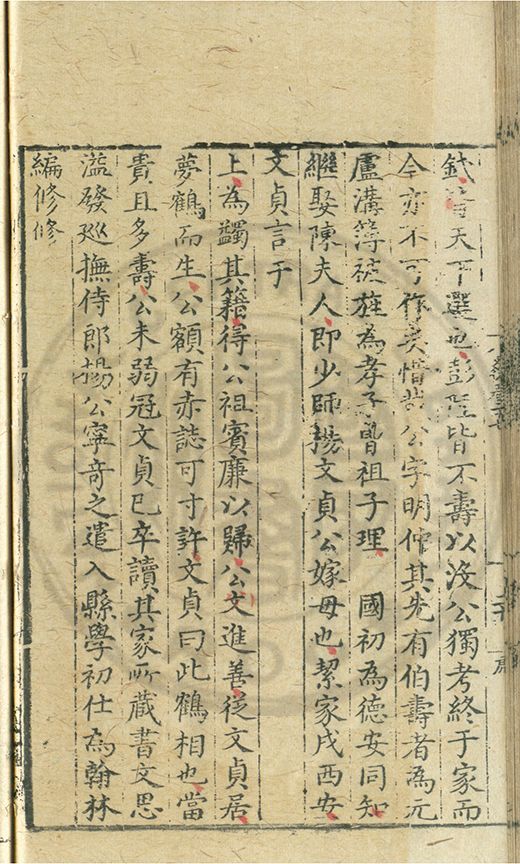 銓皆天下選也彭陸皆不壽以沒公獨考終于家而
今亦不可作矣惜哉公字明仲其先有伯壽者為元
盧溝簿被旌為孝子曾祖子理　國初為德安同知
繼娶陳夫人即少師楊文貞公嫁母也絜家戍西安
文貞言于
上為蠲其籍得公祖賓廉以歸公父進善從文貞居
夢鶴而生公額有赤誌可寸許文貞曰此鶴相也當
貴且多壽公未弱冠文貞已卒讀其家所藏書文思
溢發巡撫侍郎楊公寧奇之遣入縣學初仕為翰林
編修修